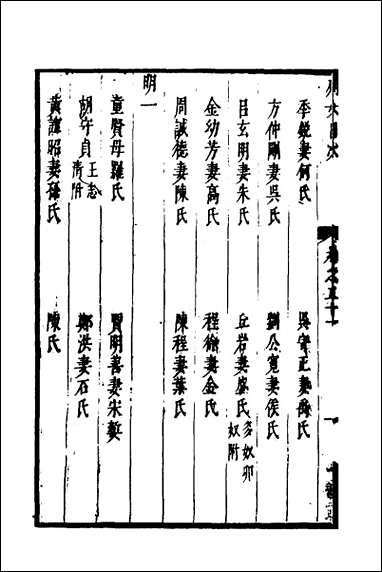 季銳妻何氏
吳守正妻禹氏
方仲剛妻吳氏
劉公寬妻侯氏
呂玄明妻朱氏
丘若妻盛氏 多奴 奴卯 附
金幼芳妻高氏
程徐妻金氏
周誠德妻陳氏
陳程妻葉氏
明一
童賢母羅氏
賈明善妻宋氏
胡守貞 王志 清附
鄭洪妻石氏
黃譚昭妻孫氏
陳氏
卷之五十一